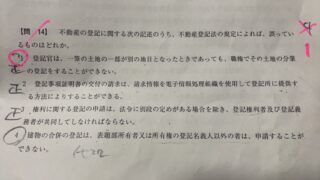 【問 14】 不動産の登記に関する次の記述のうち、不動産登記法の規定によれば、誤って
いるものはどれか。
1 登記官は、一筆の土地の一部が別の地目となったときであっても、職権でその土地の分筆
の登記をすることができない。
2 登記事項証明書の交付の請求は、請求情報を電子情報処理組織を使用して登記所に提供す
る方法によりすることができる。
3 権利に関する登記の申請は、法令に別段の定めがある場合を除き、登記権利者及び登記義
務者が共同してしなければならない。
4 建物の合併の登記は、表題部所有者又は所有権の登記名義人以外の者は、申請することが
できない。